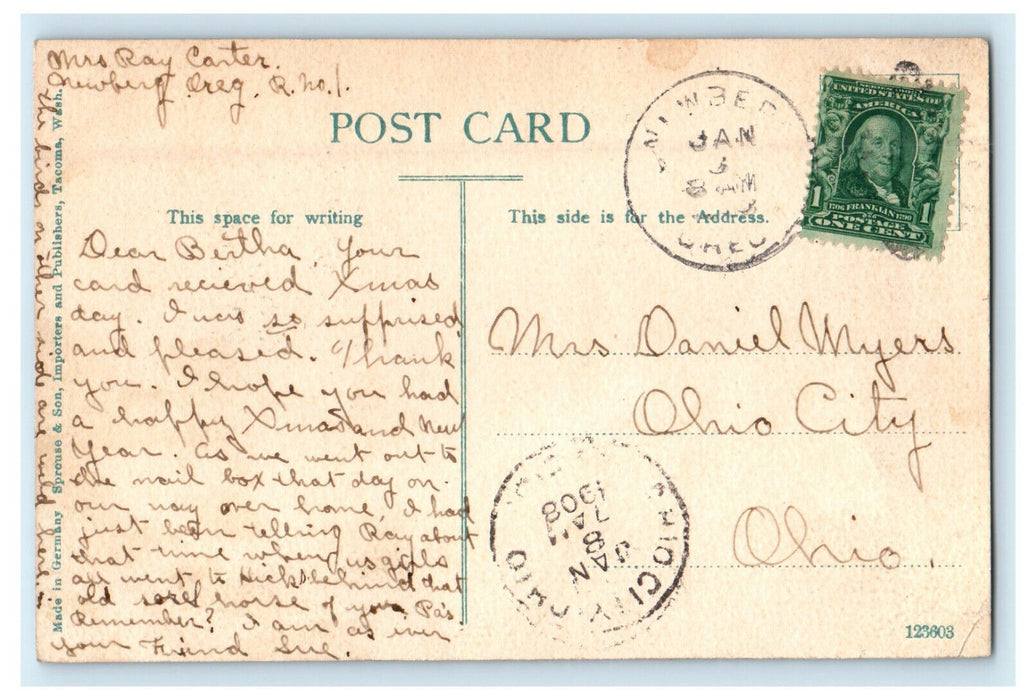 Mrs Ray Carter.
Newberg Oreg. R. No. 1.
POST CARD
This space for writing
This side is for the Address.
Dear Bertha, Your
card recieved Xmas
day. I was so supprised
and pleased. Thank
you. I hope you had
a happy Xmas and New
Year. As we went out to
the mail box that day on
our way over home, I had
just been telling Ray about
that time when us girls
all went to Hicks behind that
old sorel horse of your Pa's
Remember? I am as ever
your Friend Sue.
the birds on other side are wild
Made in Germany Sprouse & Son, Importers and Publishers, Tacoma, Wash.
NEWBERG
JAN
8 AM
OREG
UNITED STATES OF
AMERICA
1 1706 FRANKLIN 1790 1
POSTAGE
ONE CENT
Mrs Daniel Myers
Ohio City
Ohio.
OHIO CITY OHIO
JAN
8
7 AM
1908
123603